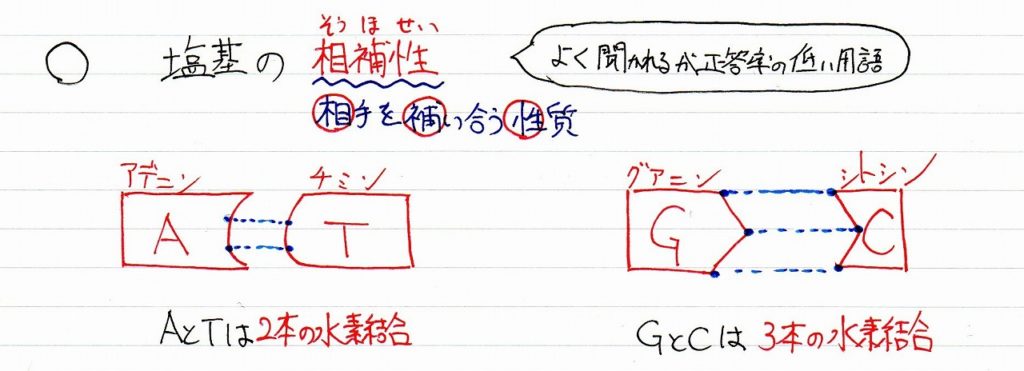 そうほせい
塩基の相補性
よく聞かれるが正答率の低い用語
相手を補い合う性質
アデニン チミン
A T
グアニン シトシン
G C
AとTは2本の水素結合
GとCは3本の水素結合